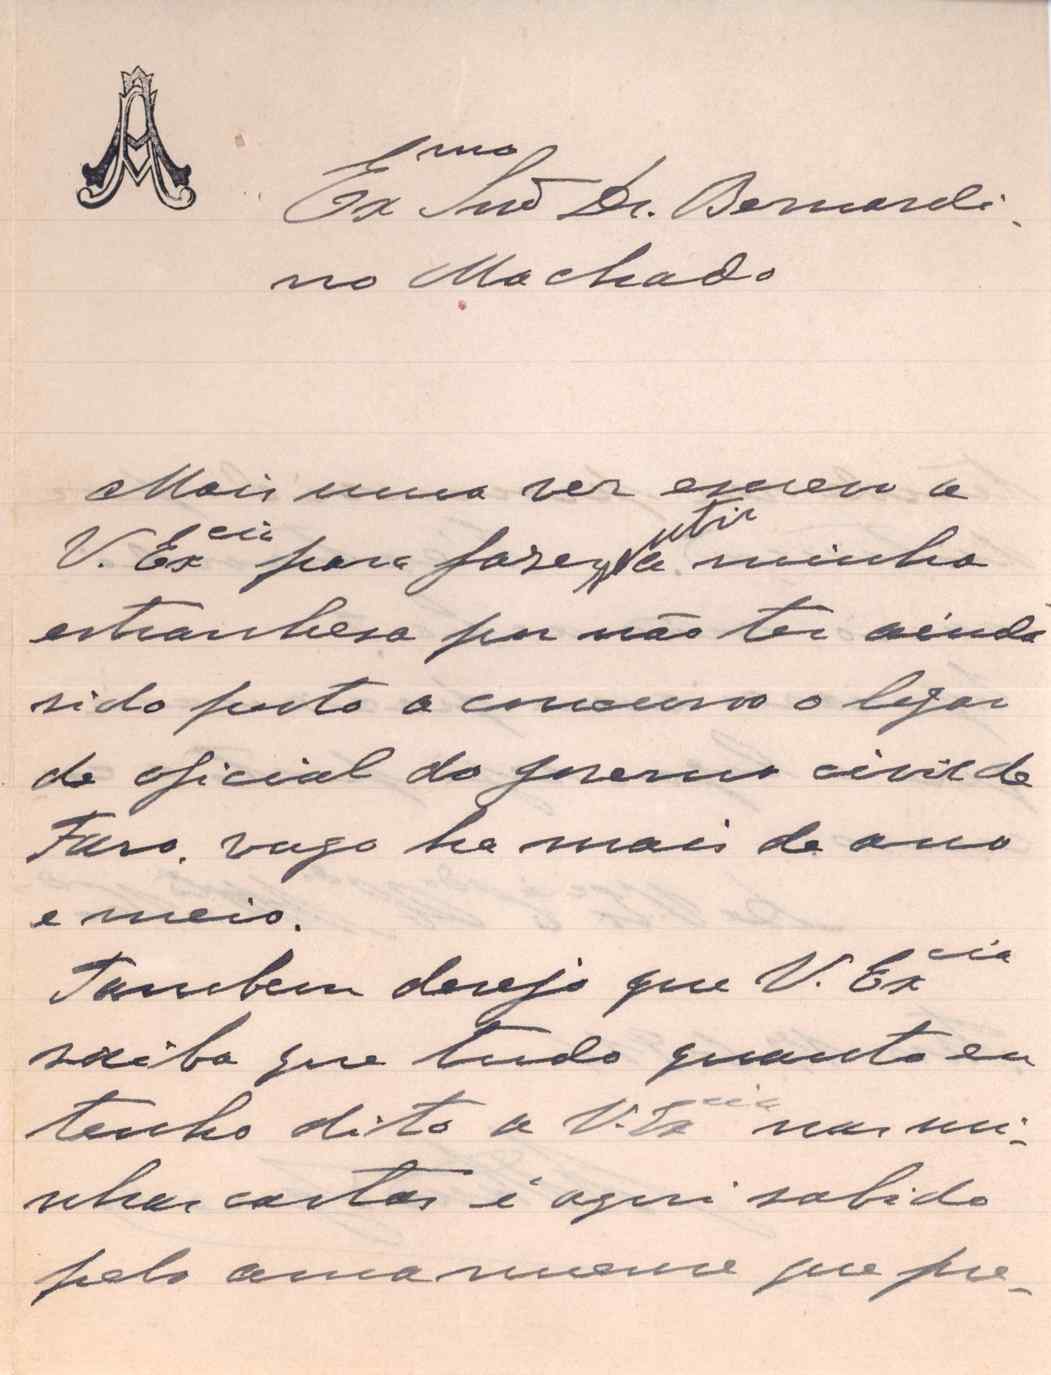 A
Ex.mo Snr. Dr. Bernardi-
no Machado
Mais uma vez escrevo a
V. Ex.cia para fazer sentir a minha
estranhesa por não ter ainda
sido posto a concurso o logar
de oficial do governo civil de
Faro, vago ha mais de ano
e meio.
Tambem desejo que V. Ex.cia
saiba que tudo quanto eu
tenho dito a V. Ex.cia nas mi-
nhas cartas é aqui sabido
pelo amanuense que pre-